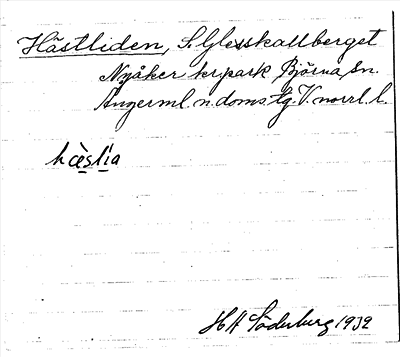 Hästliden, S. Glesskallberget
Nyåker krpark Björna sn.
Ångerml. n. doms tg. V. norrl. l.
hæ̀slía
H H Söderburg 1932